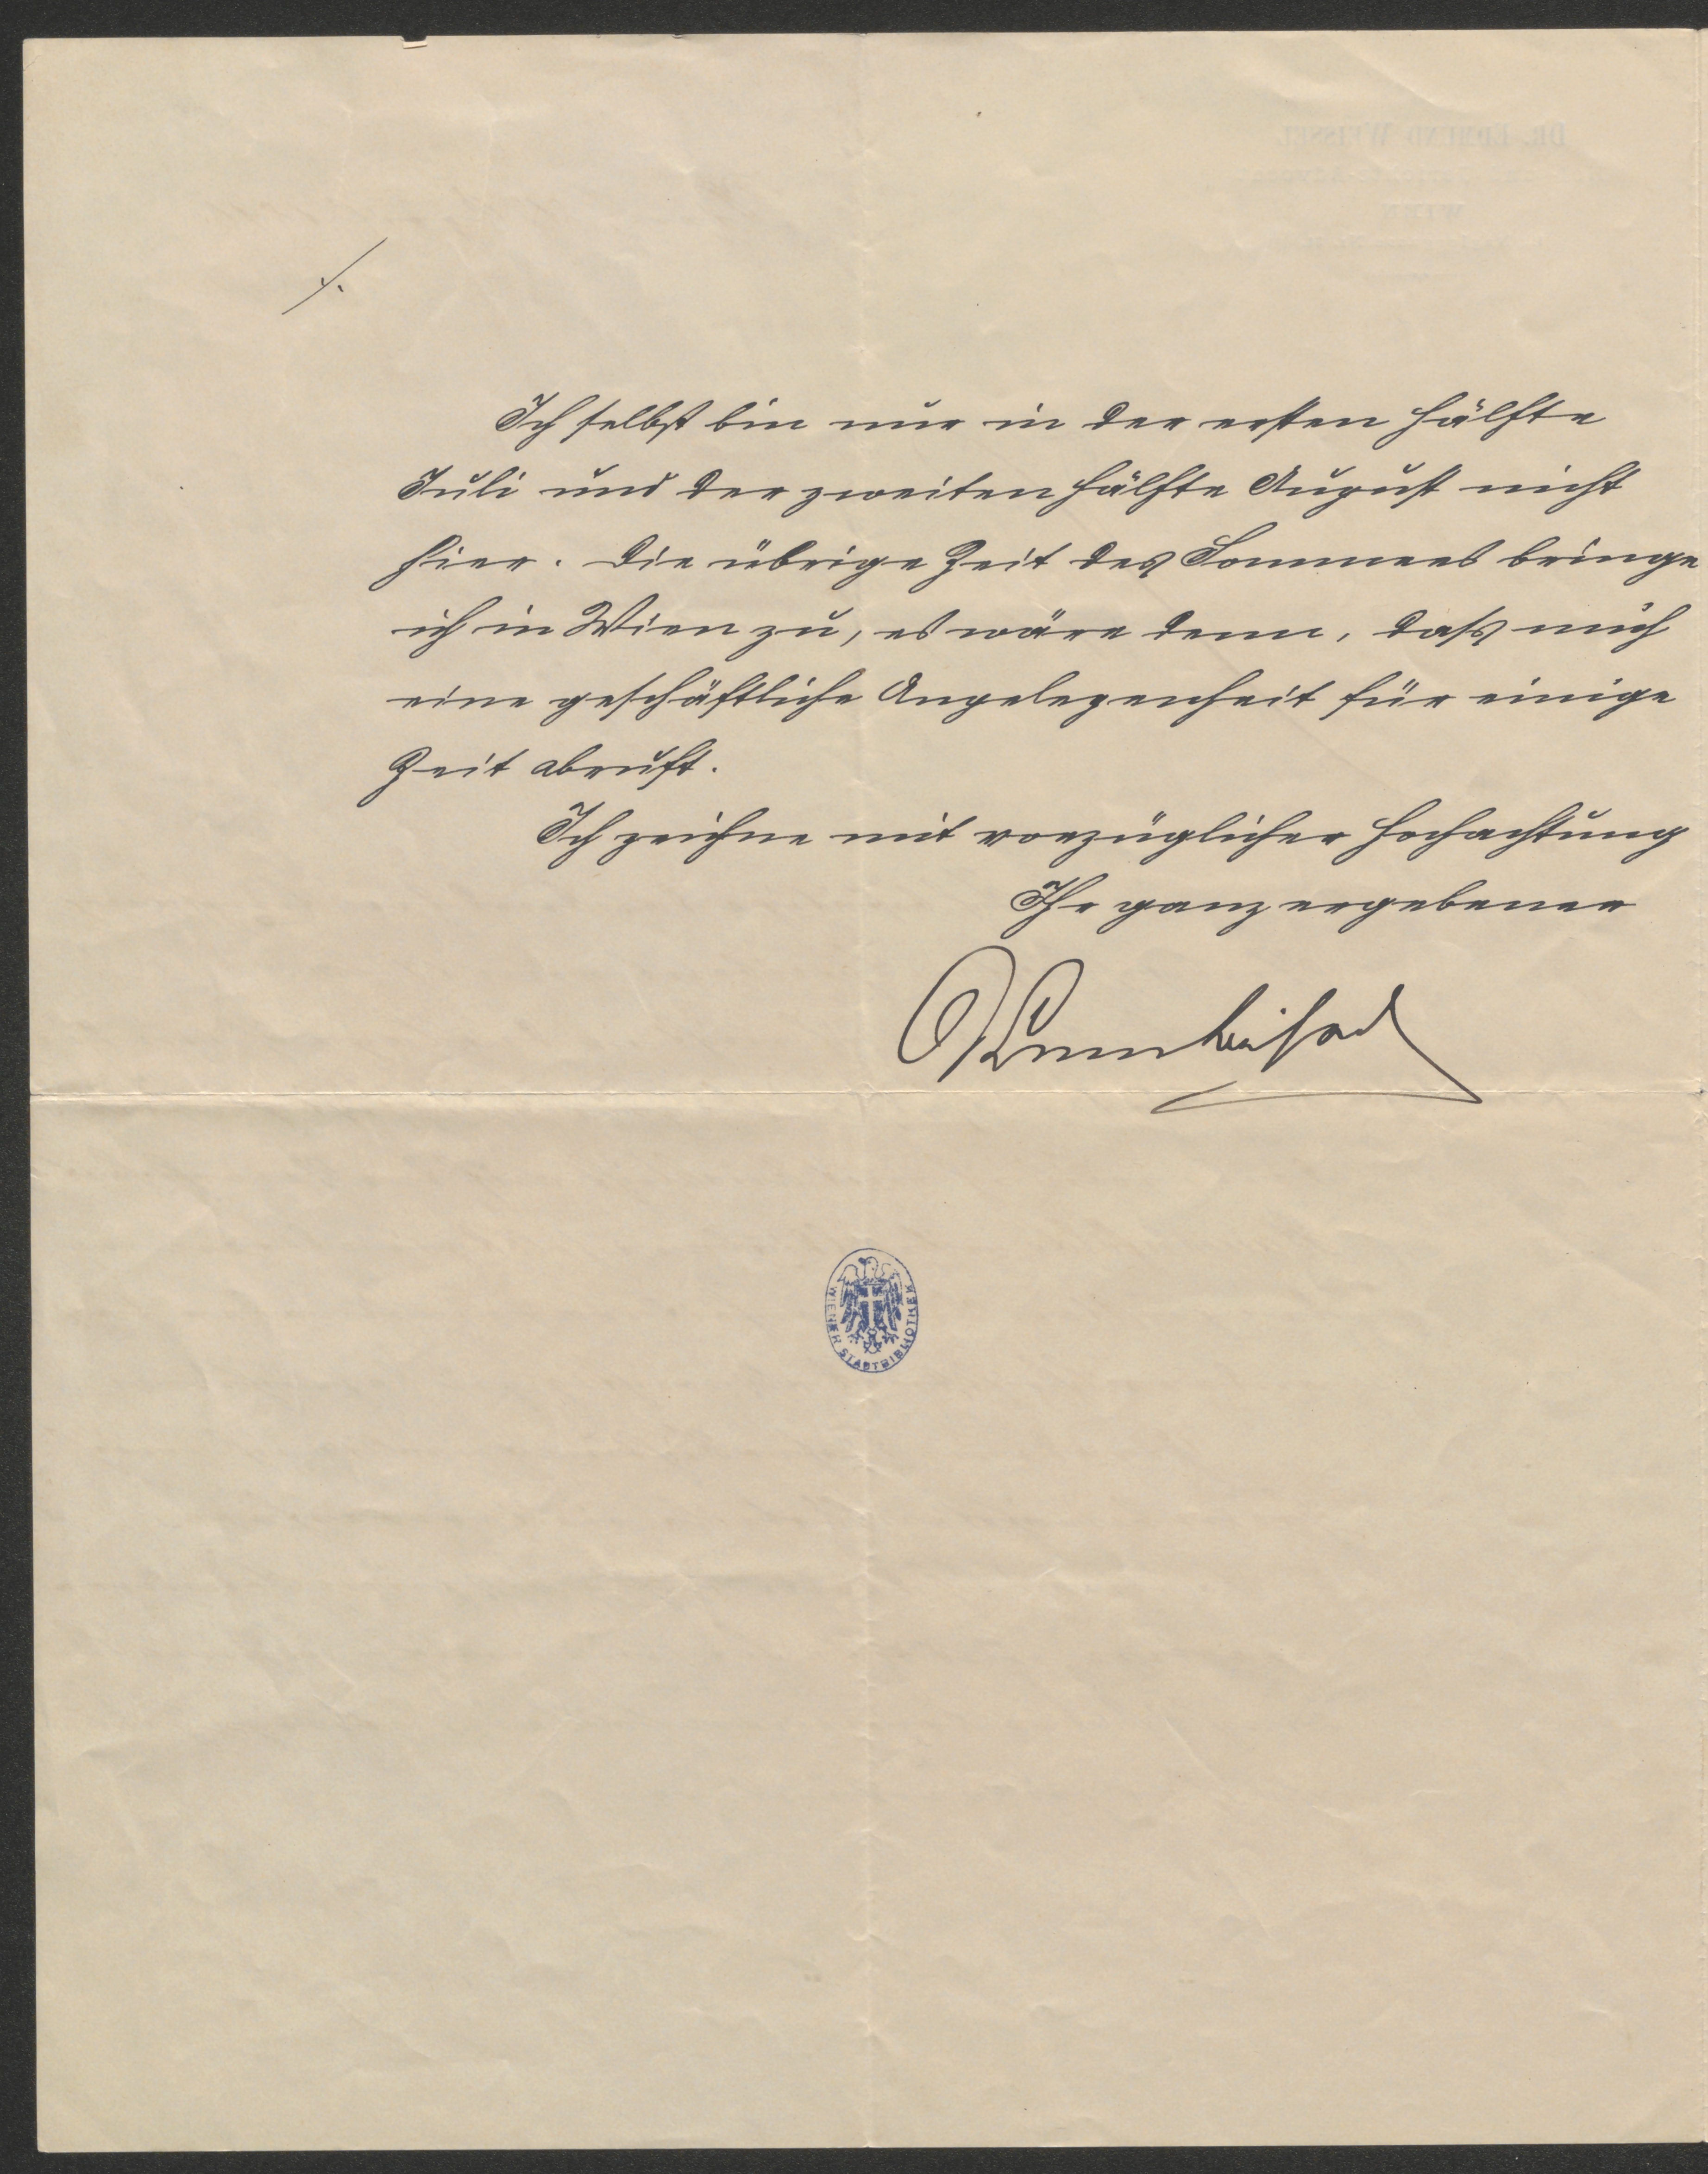 ./.
Ich selbst bin nur in der ersten Hälfte
Juli und der zweiten Hälfte August nicht
hier. Die übrige Zeit des Sommers bringe
ich in Wien zu, es wäre denn, daß mich
eine geschäftliche Angelegenheit für einige
Zeit abruft.
Ich zeichne mit vorzüglicher Hochachtung
Ihr ganz ergebener
WIENER STADTBIBLIOTHEK